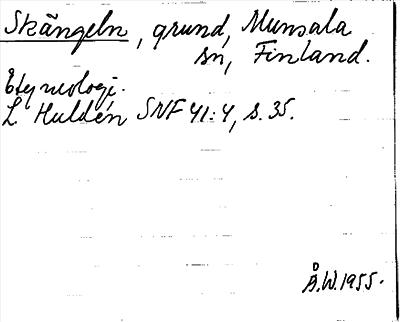 Skängeln, grund, Munsala
sn, Finland.
Etymologi.
L. Huldén SNF 41:4, s. 35.
Å.W. 1955.